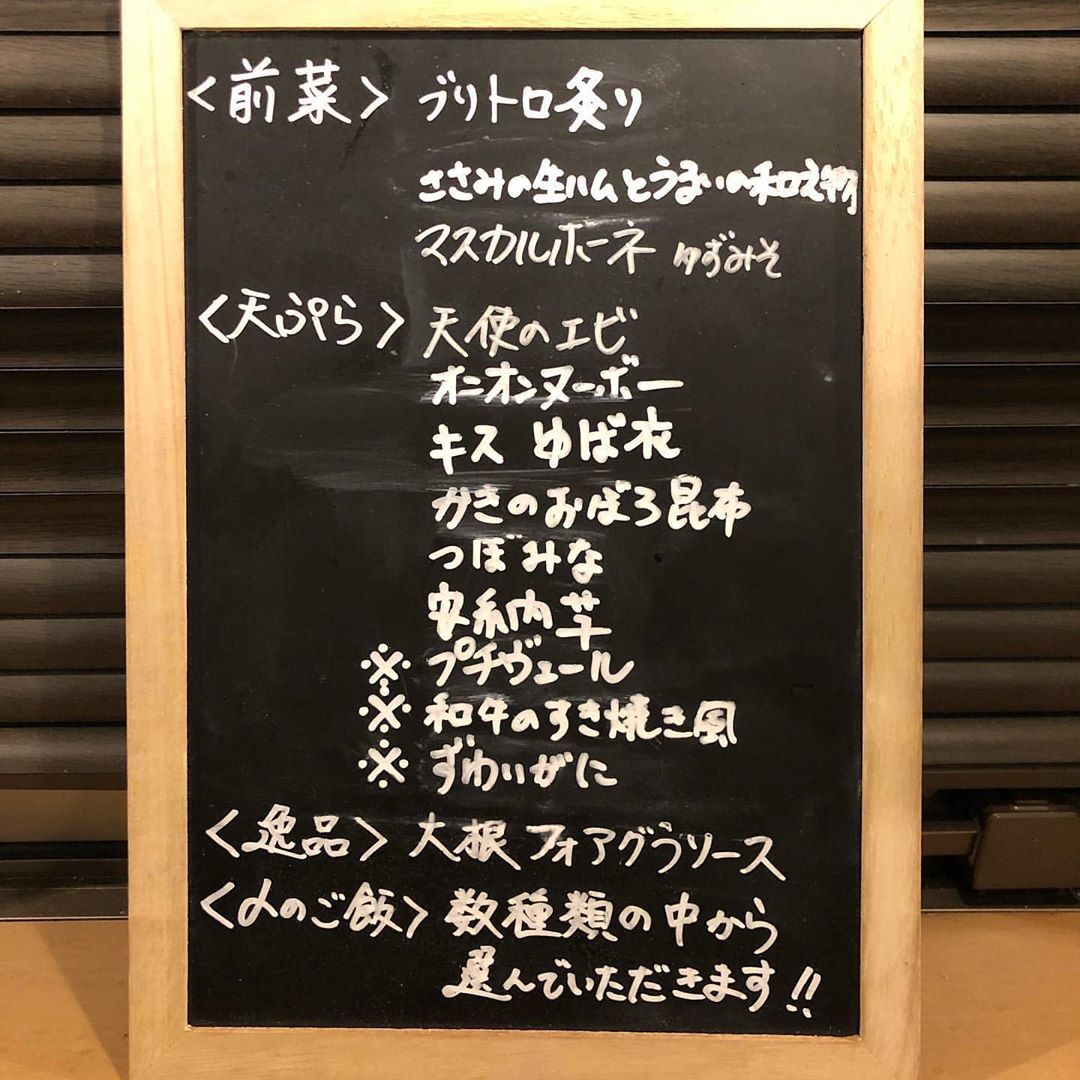 <前菜> ブリトロ炙り
ささみの生ハムとうるいの和え物
マスカルポーネ ゆずみそ
<天ぷら> 天使のエビ
オニオンヌーボー
キス ゆば衣
かきのおぼろ昆布
つぼみな
安納芋
※ プチヴェール
※ 和牛のすき焼き風
※ ずわいがに
<逸品> 大根 フォアグラソース
<〆のご飯> 数種類の中から
選んでいただきます!!